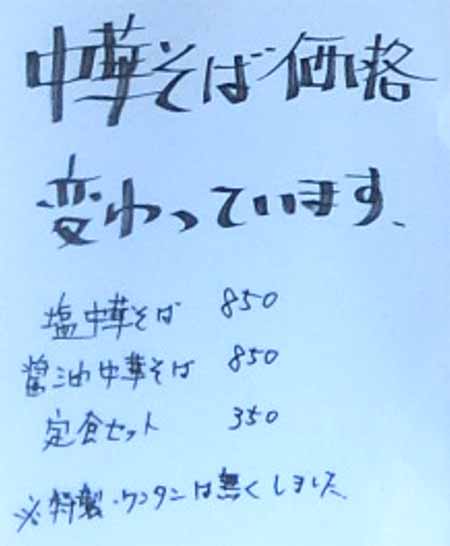 中華そば価格
変わっています、
塩中華そば 850
醤油中華そば 850
定食セット 350
※特製・ワンタンは無くしました。